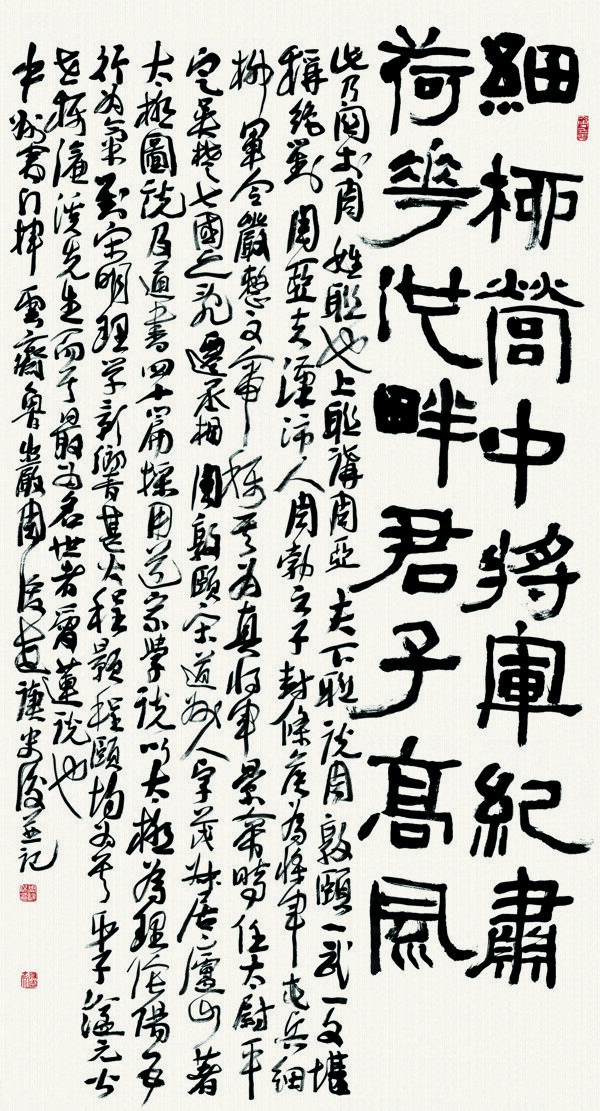 細柳營中將軍紀肅
荷華池畔君子高風
此乃関於周姓聯也上聯講周亞夫下聯說周敦頤一武一文堪
稱絕對周亞夫漢沛人周勃之子封條侯為將軍屯兵細
柳軍令嚴整文帝稱其為真將軍景帝時任太尉平
定吳楚七國之亂遷丞相周敦頤宋道州人字茂叔居廬山著
太極圖說及通書四十篇採用道家學說以太極為理陰陽五
行為氣對宋明理學影響甚大程顥程頤均為其弟子謚元公
世稱濂溪先生而其最為名世者愛蓮說也
揮雲齋魯山嚴周俊並記